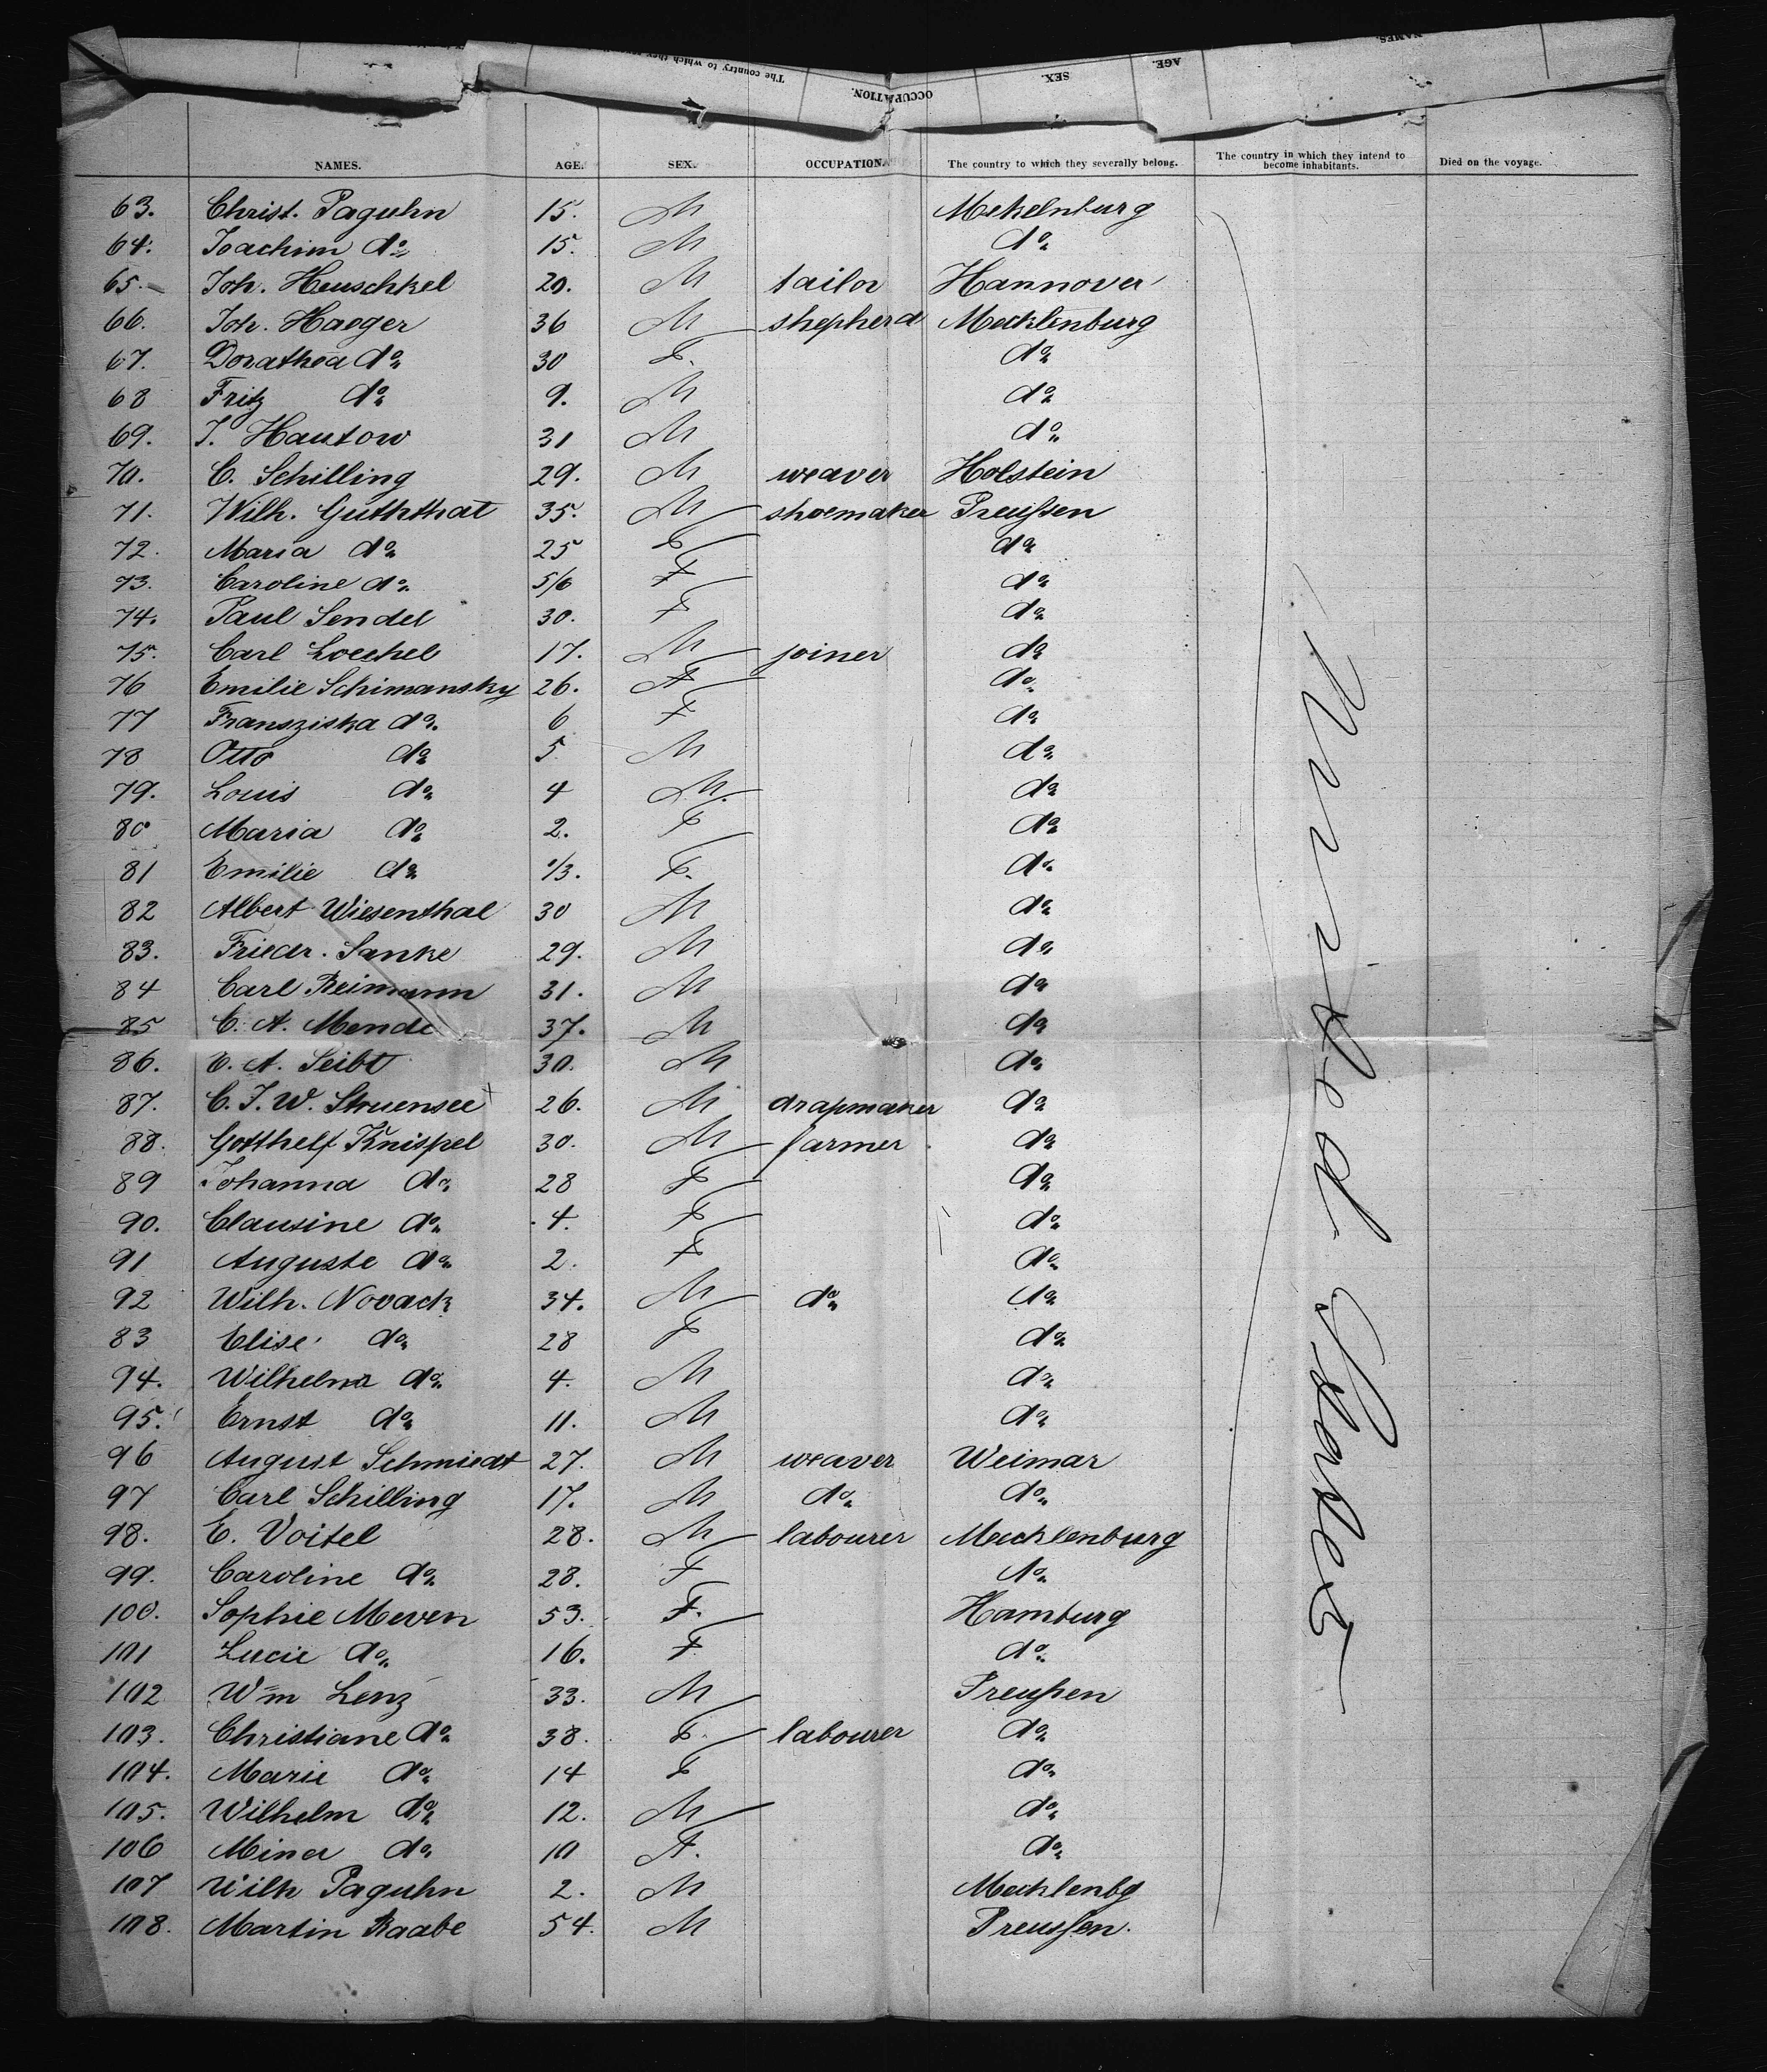 The country to which they
OCCUPATION.
SEX.
AGE.
NAMES.
NAMES. AGE. SEX. OCCUPATION. The country to which they severally belong. The country in which they intend to become inhabitants. Died on the voyage.
63. Christ. Paguhn 15. M Mekelnburg
64. Joachim do 15. M do
65. Joh. Heuschkel 20. M tailor Hannover
66. Joh. Haeger 36 M shepherd Mecklenburg
67. Dorathea do 30 F. do
68 Fritz do 9. M do
69. J. Hautow 31 M do
70. C. Schilling 29. M weaver Holstein
71. Wilh. Guththat 35. M shoemaker Preußen
72. Maria do 25 F do
73. Caroline do 5/6 F do
74. Paul Sendel 30. F do
75. Carl Loechel 17. M joiner do
76 Emilie Schimansky 26. F do
77 Fransziska do 6 F do
78 Otto do 5 M do
79. Louis do 4 M. do
80 Maria do 2. F do
81 Emilie do 1/3. F. do
82 Albert Wiesenthal 30 M do
83. Friedr. Sanke 29. M do
84 Carl Reimann 31. M do
85 C. A. Mende 37. M do
86. E. A. Seibt 30. M do
87. C. J. W. Struensee 26. M drapmaker do
88. Gotthelf Knispel 30. M farmer do
89 Johanna do 28 F do
90. Clausine do 4. F do
91 Auguste do 2. F do
92 Wilh. Novack 34. M do do
83 Elise do 28 F do
94. Wilhelm do 4. M do
95. Ernst do 11. M do
96 August Schmiedt 27. M weaver Weimar
97 Carl Schilling 17. M do do
98. E. Voitel 28. M labourer Mecklenburg
99. Caroline do 28. F do
100. Sophie Meven 53. F. Hamburg
101 Lucie do 16. F do
102 Wm Lenz 33. M Preußen
103. Christiane do 38. F. labourer do
104. Marie do 14 F do
105. Wilhelm do 12. M do
106 Mina do 10 F. do
107 Wilh Paguhn 2. M Mecklenbg
108. Martin Raabe 54. M Preußen.
United States